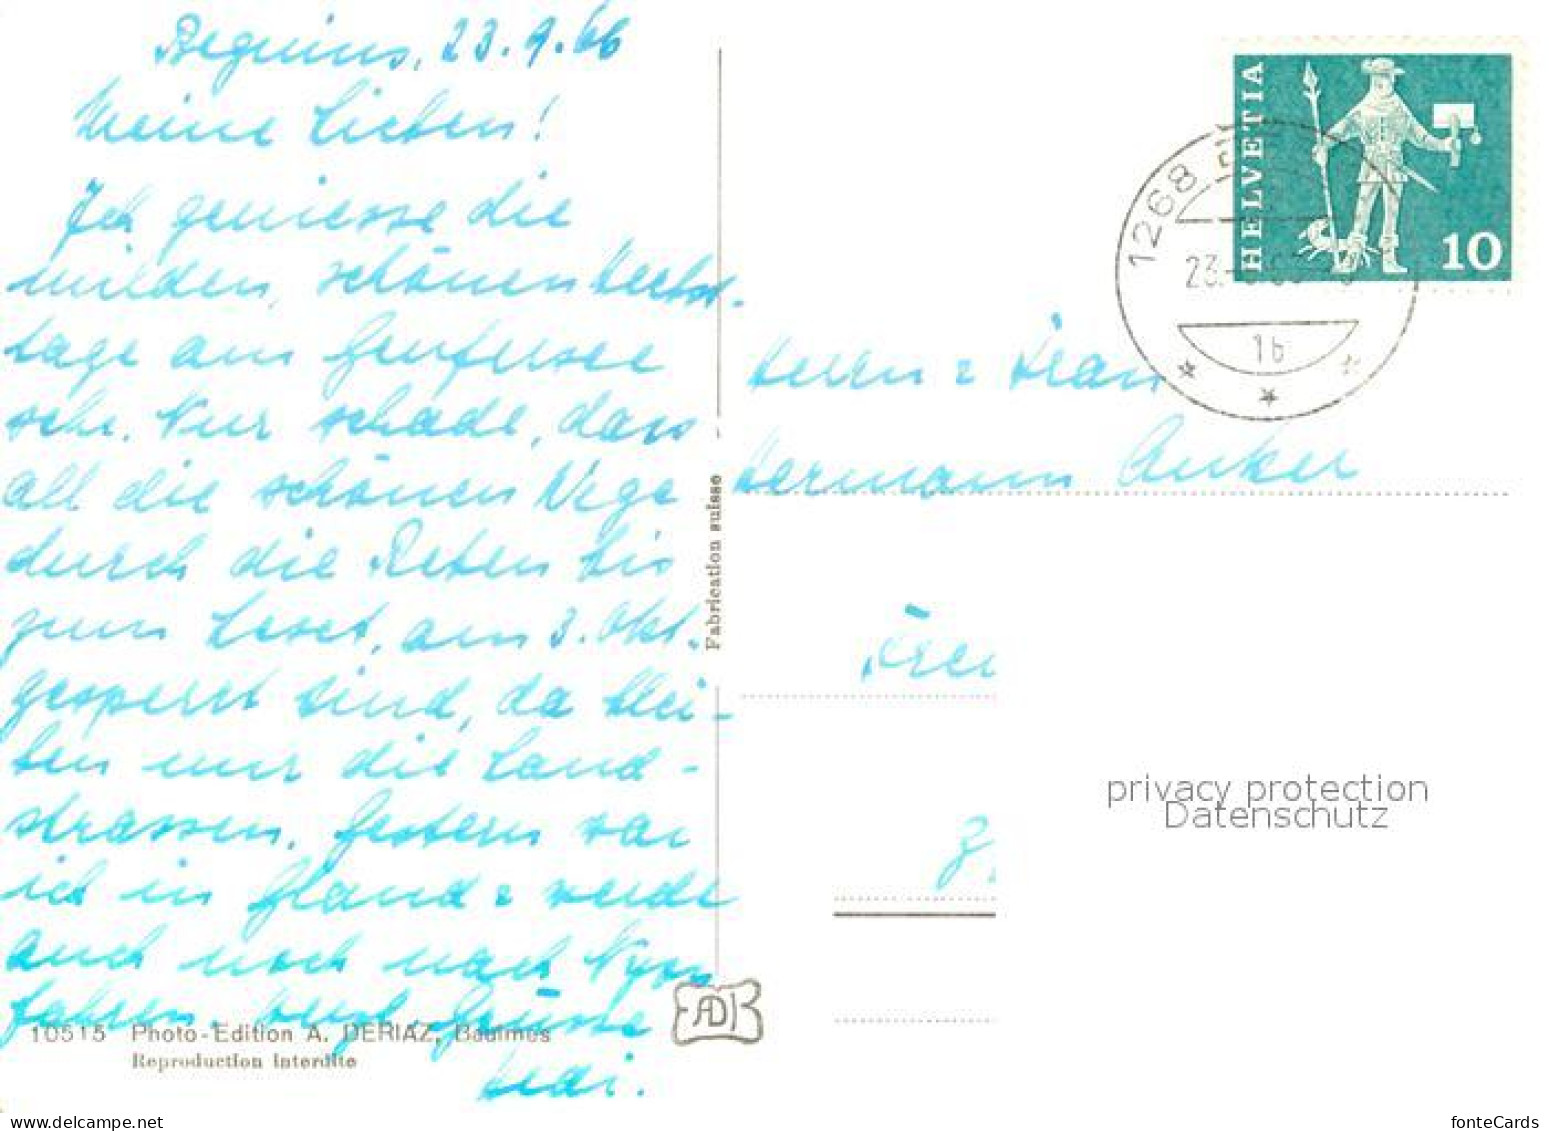 Begnins, 23.9.66
Meine Lieben!
Ich geniesse die
milden, schönen Herbst-
tage am Genfersee
sehr. Nur schade, dass
all die schönen Wege
durch die Reben bis
zum Leset, am 3. Okt.
gesperrt sind, da blei-
ben nur die Land-
strassen. Gestern war
ich in Gland & werde
auch noch nach Nyon
fahren. Grüsse
Hedi.
10515 Photo-Edition A. DERIAZ, Baulmes
Reproduction interdite
Fabrication suisse
AD
HELVETIA
10
1268
23.
1b
Herrn & Frau
Hermann Anker
privacy protection
Datenschutz
www.delcampe.net
fonteCards